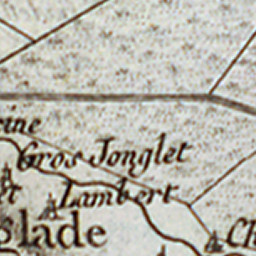 eine
Gros Jonglet
t Lambert
slade
Ch